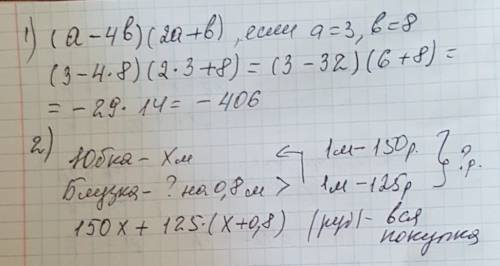 1) (a-4b)(2a+b), если a=3, b=8
(3-4·8)(2·3+8)=(3-32)(6+8)=
=-29·14=-406
2)
Юбка - xм 1м-150р.
Блузка-? на 0,8м > 1м-125р } ?р.
150x+125·(x+0,8) (руб)- вся
покупка